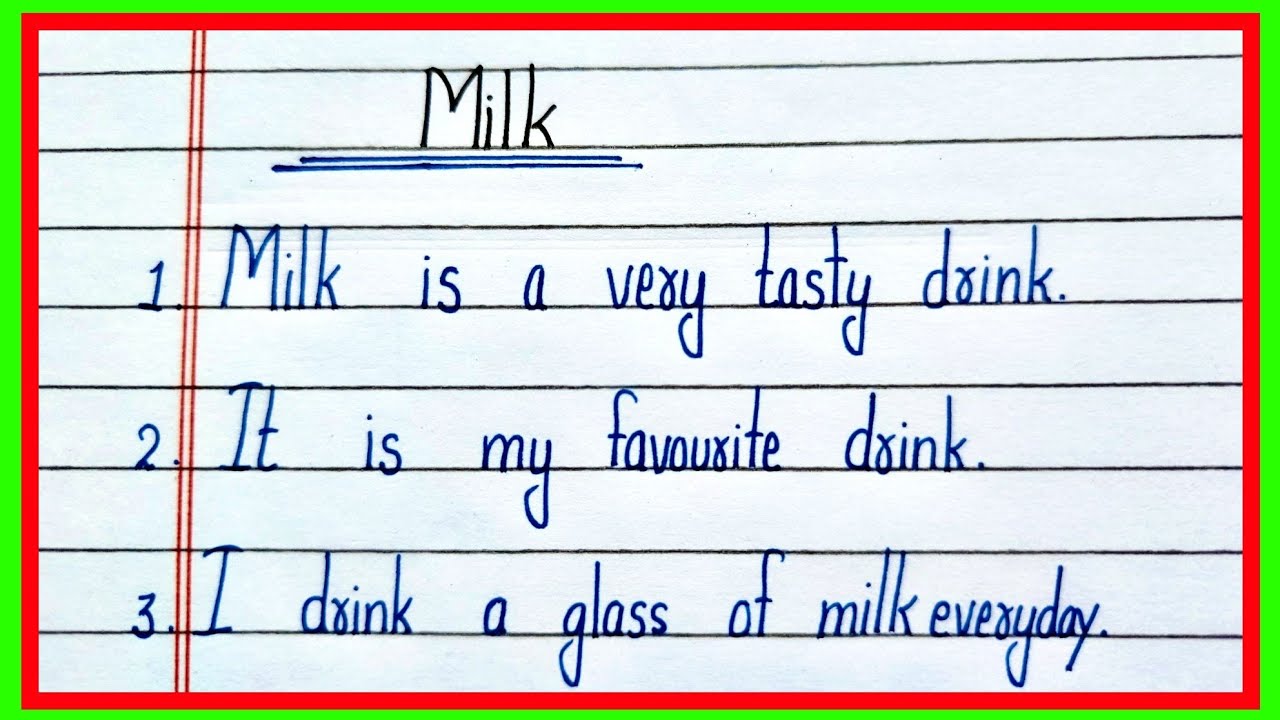 Milk
1. Milk is a very tasty drink.
2. It is my favourite drink.
3. I drink a glass of milk everyday.